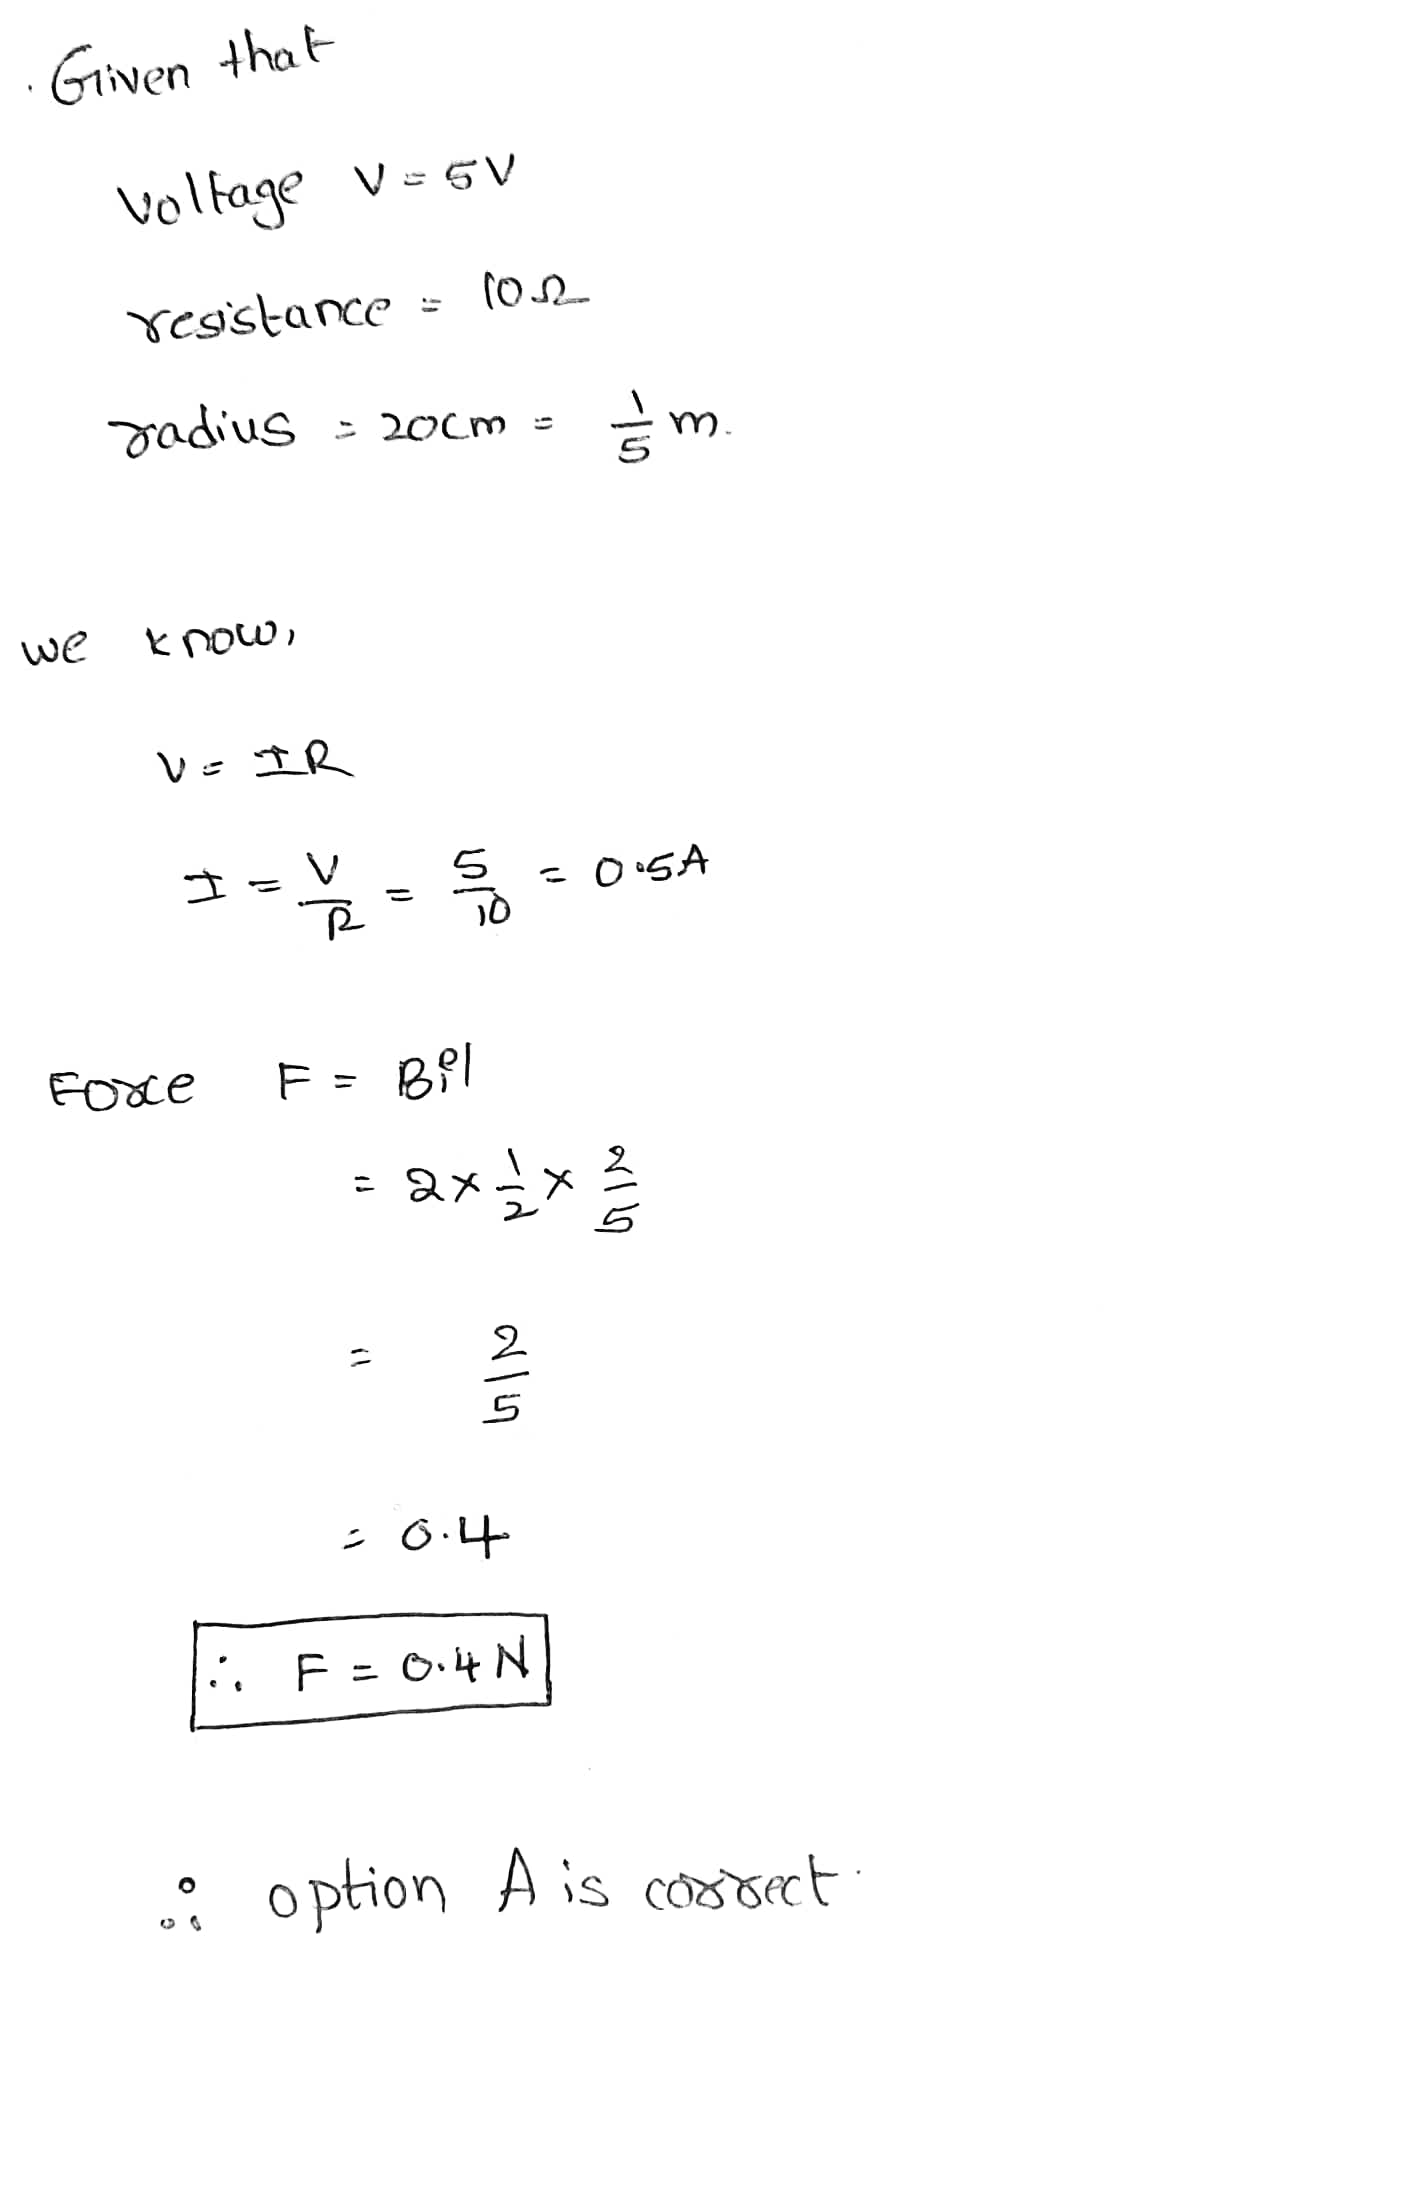 . Given that
Voltage V = 5V
resistance = 10Ω
radius = 20cm = 1/5 m.
we know,
V = IR
I = V/R = 5/10 = 0.5A
Force F = Bil
= 2 × 1/2 × 2/5
= 2/5
= 0.4
∴ F = 0.4 N
∴ option A is correct.